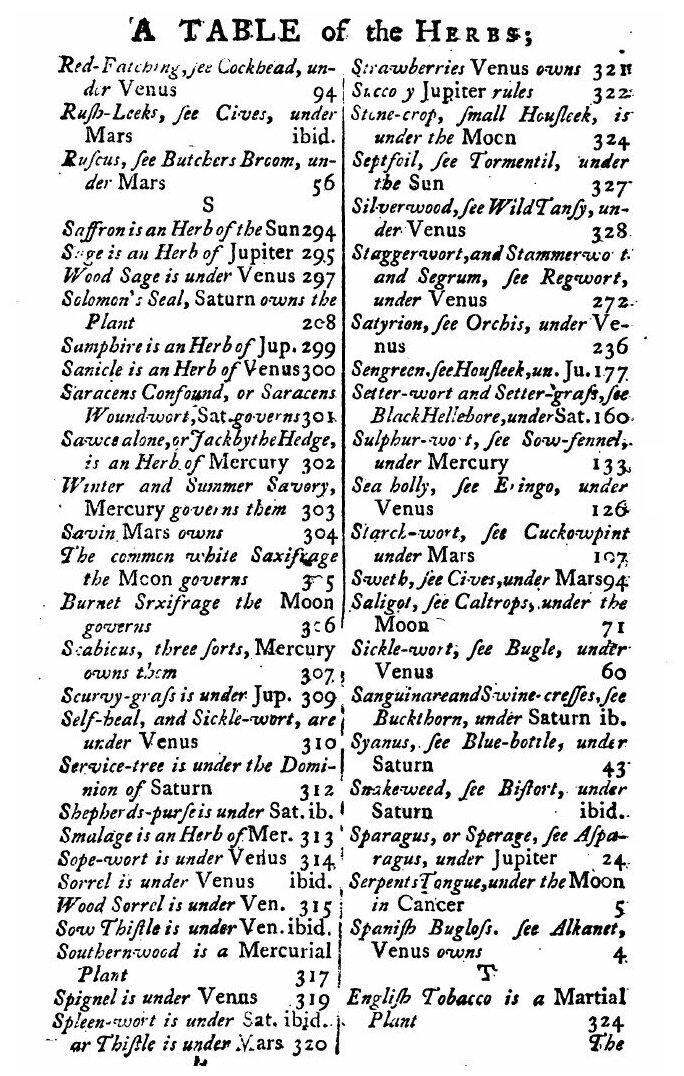 A TABLE of the HERBS;
Red-Fatching, ſee Cockhead, un-
der Venus 94
Ruſh-Leeks, ſee Cives, under
Mars ibid.
Ruſcus, ſee Butchers Broom, un-
der Mars 56
S
Saffron is an Herb of the Sun 294
Sage is an Herb of Jupiter 295
Wood Sage is under Venus 297
Solomon's Seal, Saturn owns the
Plant 208
Samphire is an Herb of Jup. 299
Sanicle is an Herb of Venus 300
Saracens Confound, or Saracens
Woundwort, Sat. governs 301
Sawce alone, or Jack by the Hedge,
is an Herb of Mercury 302
Winter and Summer Savory,
Mercury governs them 303
Savin Mars owns 304
The common white Saxifrage
the Moon governs 305
Burnet Srxifrage the Moon
governs 306
Scabicus, three ſorts, Mercury
owns them 307
Scurvy-graſs is under Jup. 309
Self-heal, and Sickle-wort, are
under Venus 310
Service-tree is under the Domi-
nion of Saturn 312
Shepherds-purſe is under Sat. ib.
Smalage is an Herb of Mer. 313
Sope-wort is under Venus 314
Sorrel is under Venus ibid.
Wood Sorrel is under Ven. 315
Sow Thiſtle is under Ven. ibid.
Southernwood is a Mercurial
Plant 317
Spignel is under Venus 319
Spleen-wort is under Sat. ibid.
ar Thiſtle is under Mars 320
Strawberries Venus owns 321
Succo y Jupiter rules 322
Stone-crop, ſmall Houſleek, is
under the Moon 324
Septfoil, ſee Tormentil, under
the Sun 327
Silverwood, ſee Wild Tanſy, un-
der Venus 328
Staggerwort, and Stammerwo t.
and Segrum, ſee Regwort,
under Venus 272
Satyrion, ſee Orchis, under Ve-
nus 236
Sengreen. ſee Houſleek, un. Ju. 177
Setter-wort and Setter-graſs, ſee
Black Hellebore, under Sat. 160
Sulphur-wort, ſee Sow-fennel,
under Mercury 133
Sea holly, ſee Eringo, under
Venus 126
Starch-wort, ſee Cuckowpint
under Mars 107
Sweth, ſee Cives, under Mars 94
Saligot, ſee Caltrops, under the
Moon 71
Sickle-wort, ſee Bugle, under
Venus 60
Sanguinare and Swine-creſſes, ſee
Buckthorn, under Saturn ib.
Syanus, ſee Blue-bottle, under
Saturn 43
Snakeweed, ſee Biſtort, under
Saturn ibid.
Sparagus, or Sperage, ſee Aſpa-
ragus, under Jupiter 24
Serpents Tongue, under the Moon
in Cancer 5
Spaniſh Bugloſs. ſee Alkanet,
Venus owns 4
T
Engliſh Tobacco is a Martial
Plant 324
The